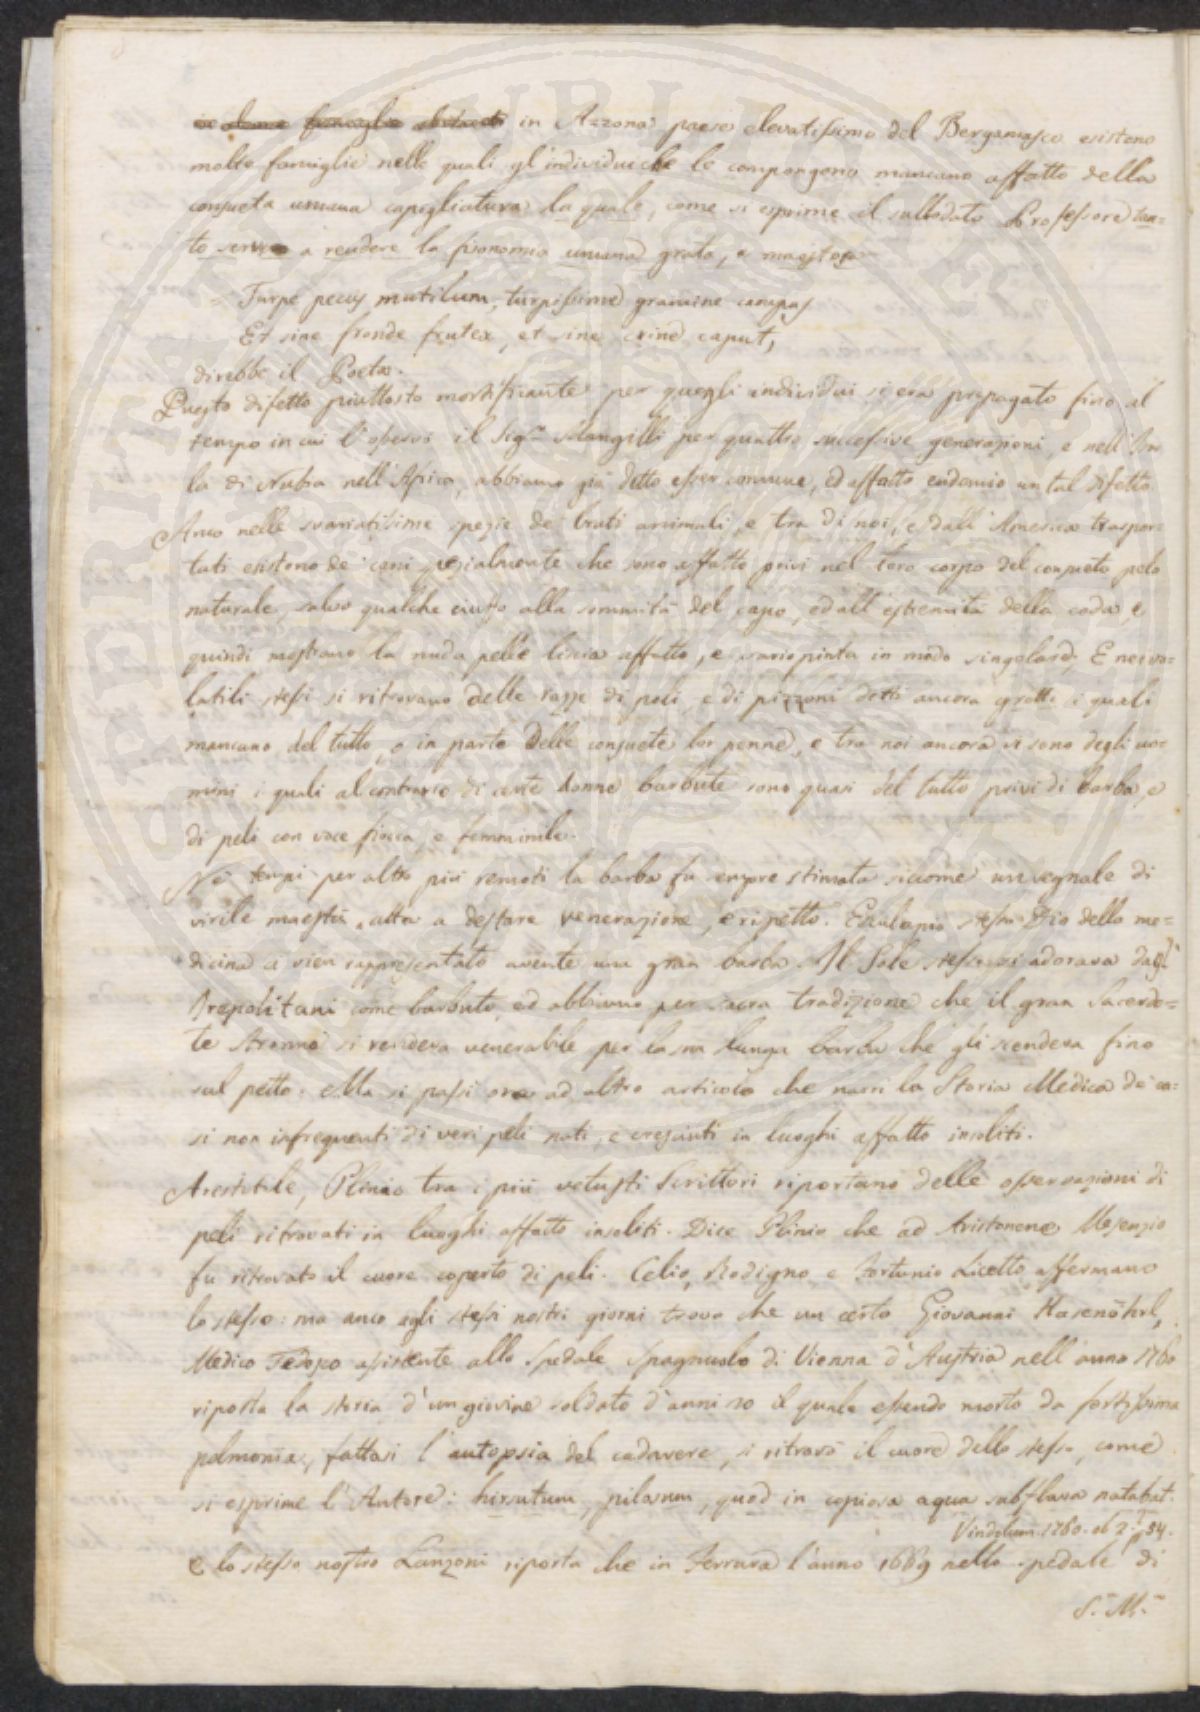 in Azzona paese elevatissimo del Bergamasco esistono
molte famiglie nelle quali gl'individui che le compongono mancano affatto della
consueta umana capigliatura la quale, come si esprime il sullodato Professore tan=
to serve a rendere la fisonomia umana grata, e maestosa
= Turpe pecus mutilum, turpissime gramine campus
Et sine fronde frutex, et sine crine caput,
direbbe il Poeta.
Questo difetto piuttosto mortificante per quegli individui si era propagato fino al
tempo in cui l'osservò il Sigr. Mangilli per quattro successive generazioni, e nell'Iso
la di Nuba nell'Africa, abbiamo già detto esser comune, ed affatto endemio un tal difetto.
Anco nelle svariatissime spezie de' bruti animali, e tra di noi, e dall'America traspor=
tati esistono de' cani spezialmente che sono affatto privi nel loro corpo del consueto pelo
naturale, salvo qualche ciuffo alla sommità del capo, ed all'estremità della coda, e
quindi mostrano la nuda pelle liscia affatto, e variopinta in modo singolare. E ne' vo=
latili stessi si ritrovano delle razze di poli, e di pizzoni detti ancora grotti, i quali
mancano del tutto, o in parte delle consuete lor penne, e tra noi ancora vi sono degli uo=
mini i quali al contrario di certe donne barbute sono quasi del tutto privi di barba, e
di peli con voce fiocca, e femminile.
Ne' tempi per altro più remoti la barba fu sempre stimata siccome un segnale di
virile maestà, atta a destare venerazione, e rispetto. Esculapio stesso Dio della me=
dicina ci vien rappresentato avente una gran barba. Il Sole stesso si adorava dagl'
Irepolitani come barbuto, ed abbiamo per sacra tradizione che il gran Sacerdo=
te Aronne si rendeva venerabile per la sua lunga barba che gli scendeva fino
sul petto. Ma si passi ora ad altro articolo che narri la Storia Medica de' ca=
si non infrequenti di veri peli nati, e cresciuti in luoghi affatto insoliti.
Arestotile, Plinio tra i più vetusti Scrittori riportano delle osservazioni di
peli ritrovati in luoghi affatto insoliti. Dice Plinio che ad Aristomene Mesenzio
fu ritrovato il cuore coperto di peli. Celio, Rodigno e Fortunio Licetto affermano
lo stesso: ma anco agli stessi nostri giorni trovo che un certo Giovanni Hasenöhrl,
Medico Tedesco assistente allo Spedale Spagnuolo di Vienna d'Austria nell'anno 1760
riporta la storia d'un giovine soldato d'anni 20 il quale essendo morto da fortissima
polmonia, fattasi l'autopsia del cadavere, si ritrovò il cuore dello stesso, come
si esprime l'Autore: hirsutum, pilosum, quod in copiosa aqua subflava natabat.
1760.
e lo stesso nostro Lanzoni riporta che in Ferrara l'anno 1669 nello spedale di
S. M.